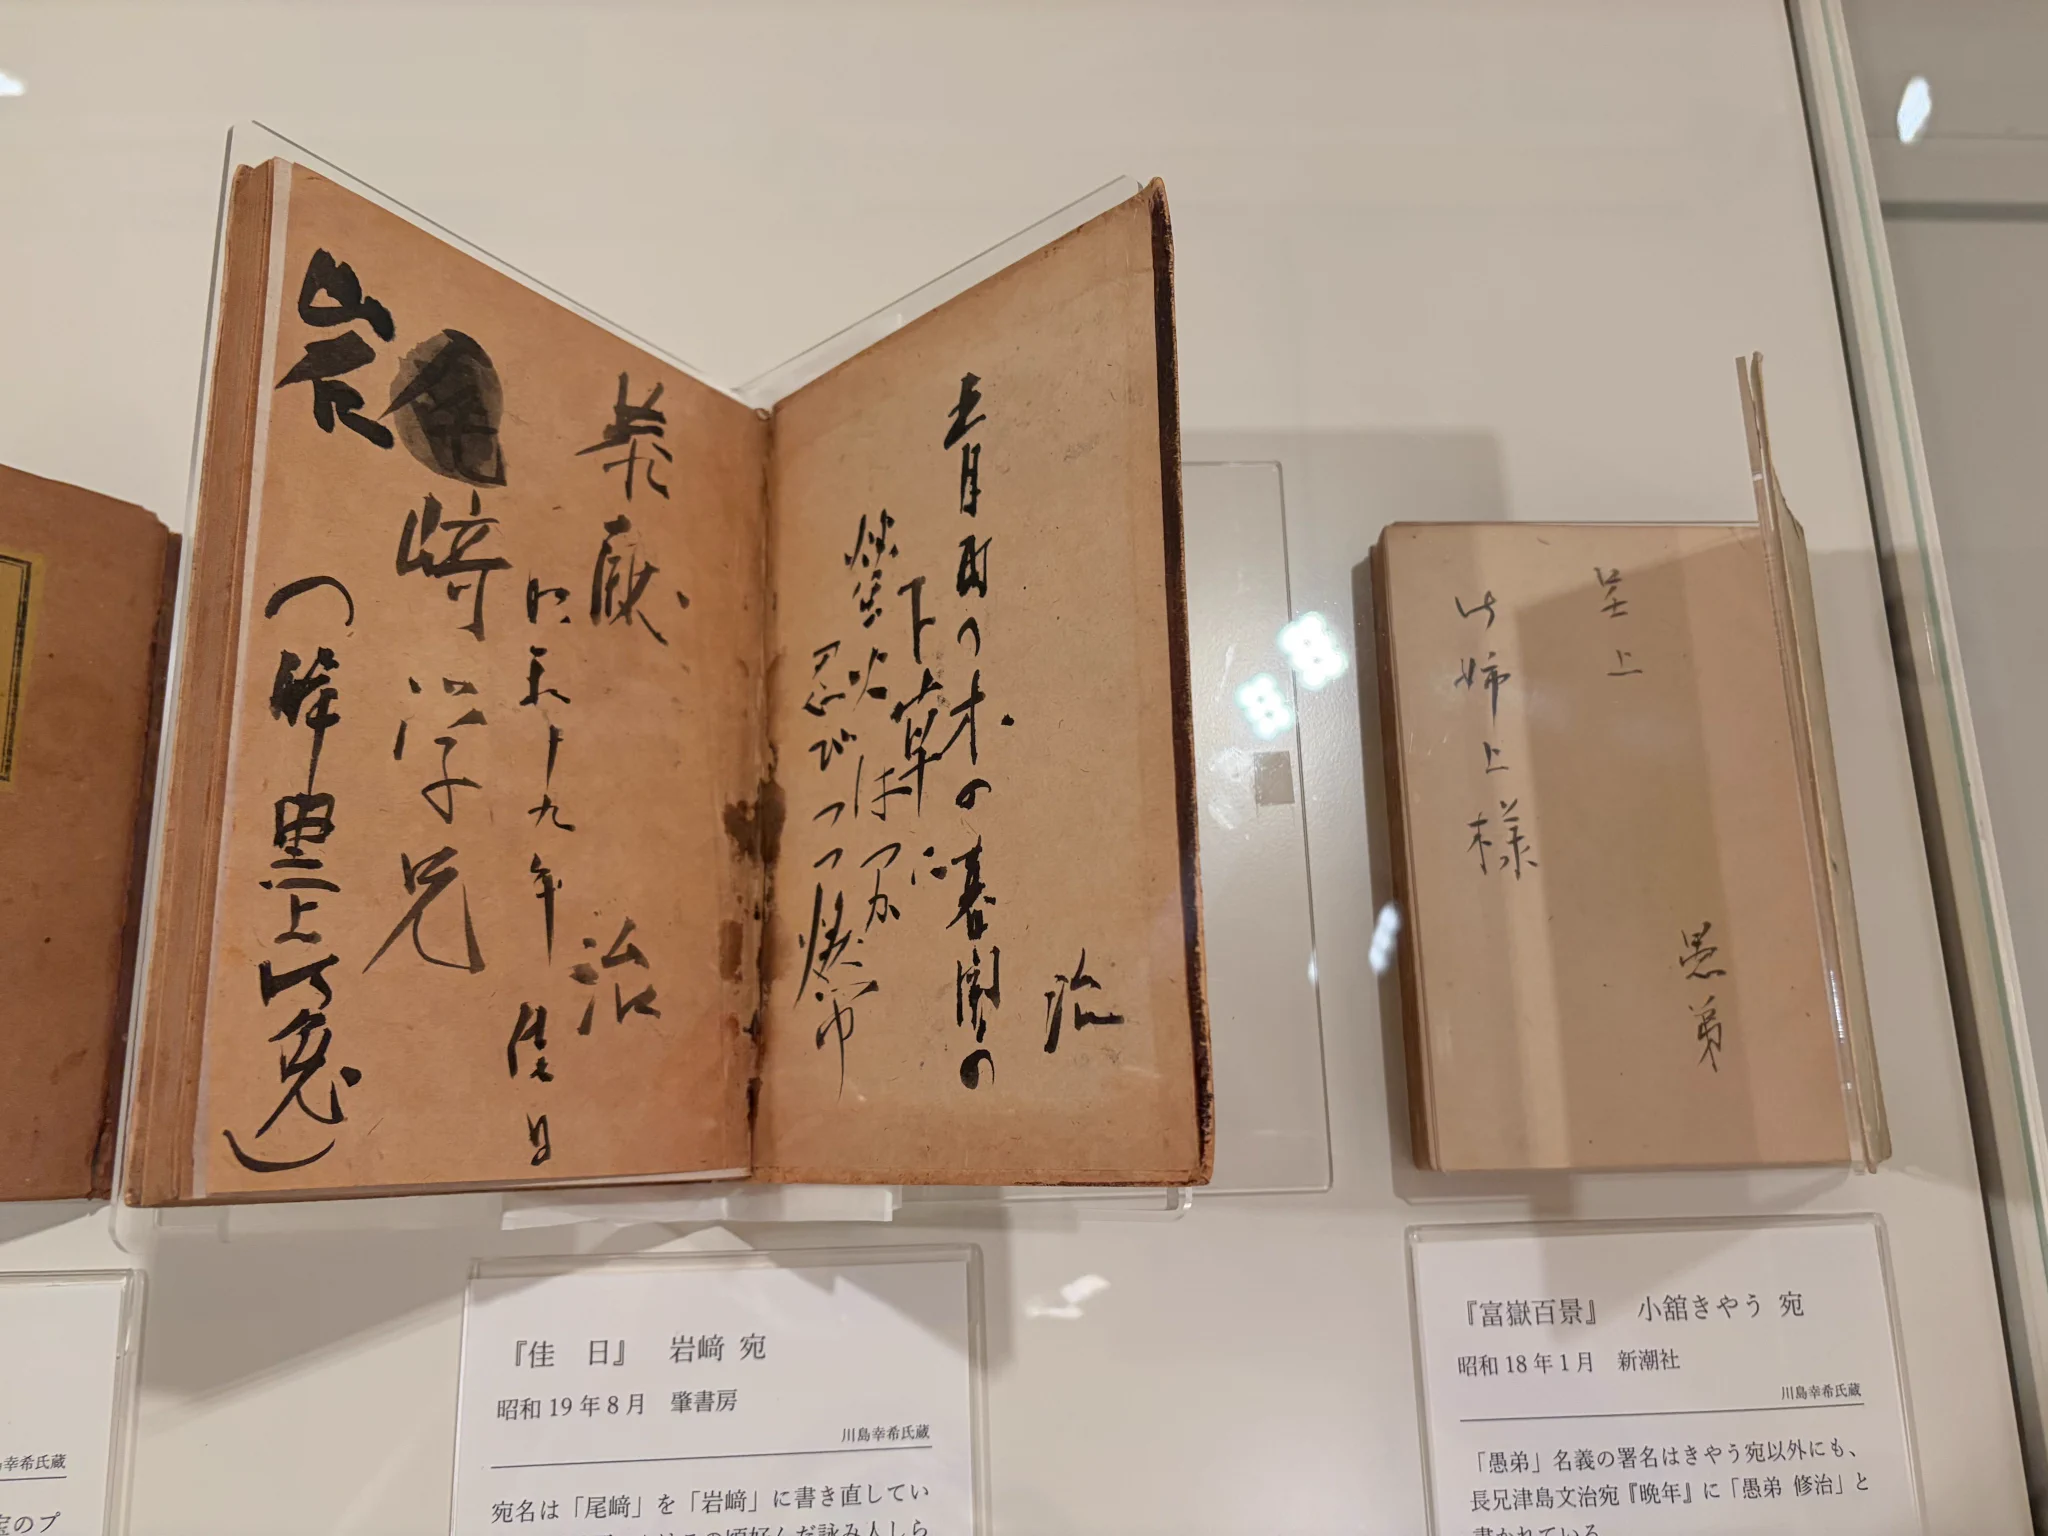 治
五月雨の木の暮闇の
下草に
螢火はつか
忍びつつ燃ゆ
治
昭和十九年 佳日
岩
崎学兄
呈上
愚弟
御姉上様
『佳 日』 岩﨑 宛
昭和 19 年 8 月 肇書房
川島幸希氏蔵
宛名は「尾﨑」を「岩﨑」に書き直してい
『富嶽百景』 小舘きやう 宛
昭和 18 年 1 月 新潮社
川島幸希氏蔵
「愚弟」名義の署名はきやう宛以外にも、
長兄津島文治宛『晩年』に「愚弟 修治」と
書かれている
幸希氏蔵
のプ